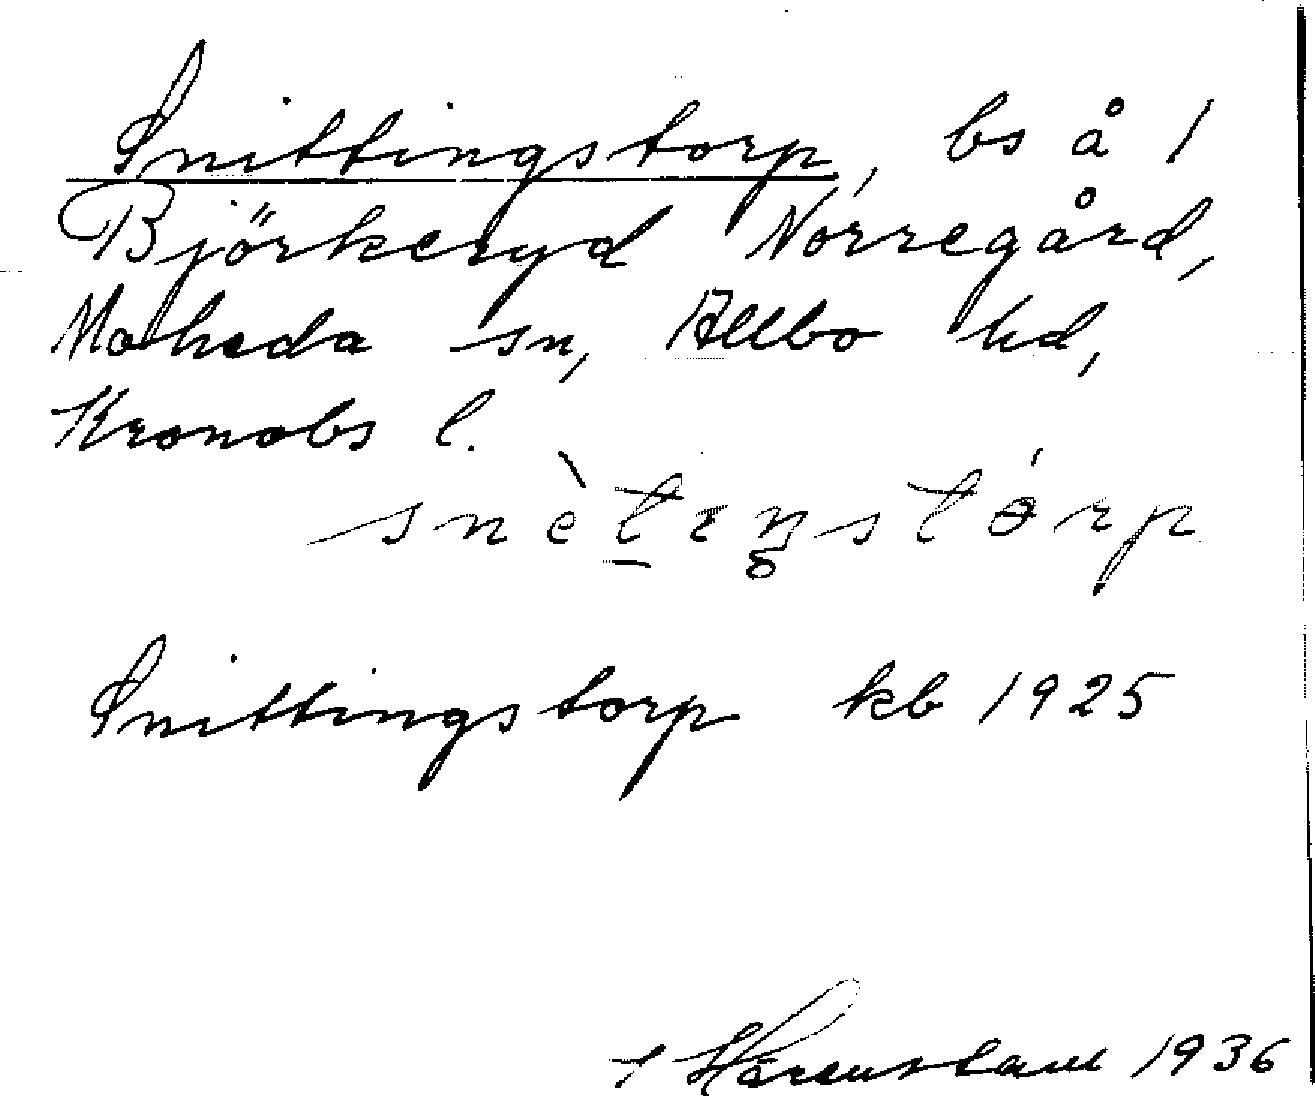 Snittingstorp, bs å 1
Björkeryd Norregård,
Moheda sn, Allbo hd,
Kronobs l.
snètɛŋstórp
Snittingstorp kb 1925
1936